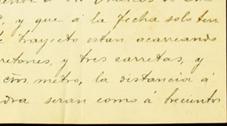 y que á la fecha solo ten
trayecto estan acarreando
retones, y tres carretas, y
metro, la distancia á
seran como á trecientos